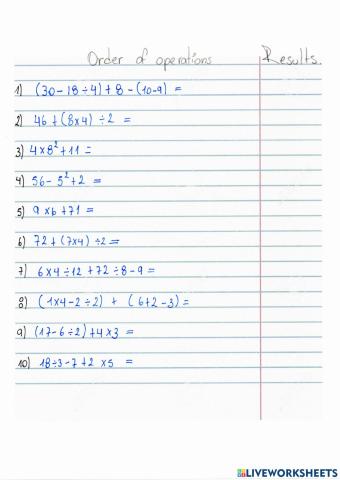 Order of operations Results.
1) (30-18÷4)+8-(10-9) =
2) 46+(8x4)÷2 =
3) 4x8²+11=
4) 56-5²+2=
5) 9x6+71=
6) 72+(7x4)÷2=
7) 6x4÷12+72÷8-9=
8) (1x4-2÷2) + (6+2-3)=
9) (17-6÷2)+4x3 =
10) 18÷3-7+2x5 =
LIVEWORKSHEETS